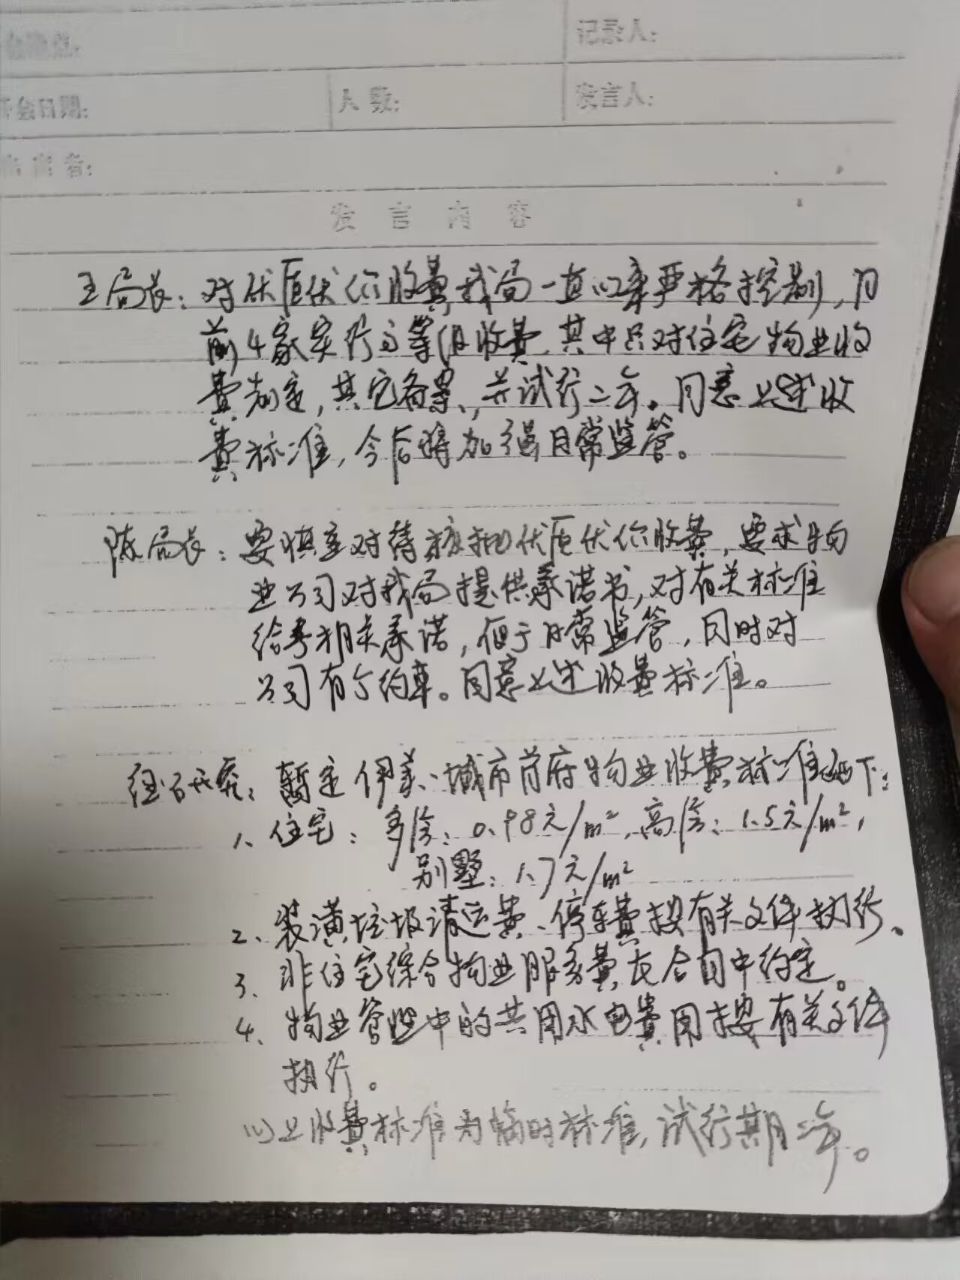 记录人:
开会日期: 人数: 发言人:
发言内容
王局长: 对优质优价收费我局一直以来严格控制, 目
前4家实行了等级收费, 其中只对住宅物业收
费制定, 其它备案, 并试行二年。同意上述收
费标准, 今后将加强日常监管。
陈局长: 要慎重对待核批优质优价收费, 要求物
业公司对我局提供承诺书, 对有关标准
给予相关承诺, 便于日常监管, 同时对
公司有个约束。同意上述收费标准。
经研究: 暂定伊美·城市首府物业收费标准如下:
1、住宅: 多层: 0.98元/m², 高层: 1.5元/m²,
别墅: 1.7元/m²
2、装潢垃圾清运费、停车费按有关文件执行。
3、非住宅综合物业服务费在合同中约定。
4、物业管理中的共用水电费用按有关文件
执行。
以上收费标准为临时标准, 试行期二年。